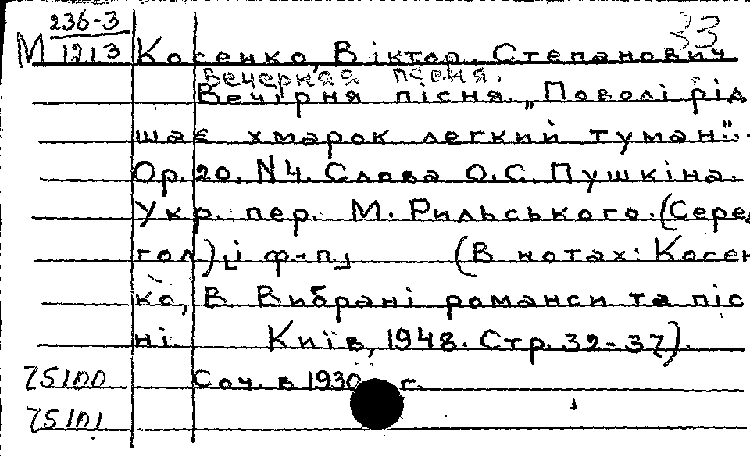 236-3 33
М 1213 Косенко, Віктор Степанович
Вечерняя песня.
Вечірня пісня. „Поволі рід
шає хмарок легкий туман".
Ор. 20. N4. Слова О.С. Пушкіна.
Укр. пер. М. Рильського. (Серед
гол) [і ф-п]  (В нотах: Косен
ко, В. Вибрані романси та піс
ні. Київ, 1948. Стр. 32-37).
75100 Соч. в 1930 г.
75101